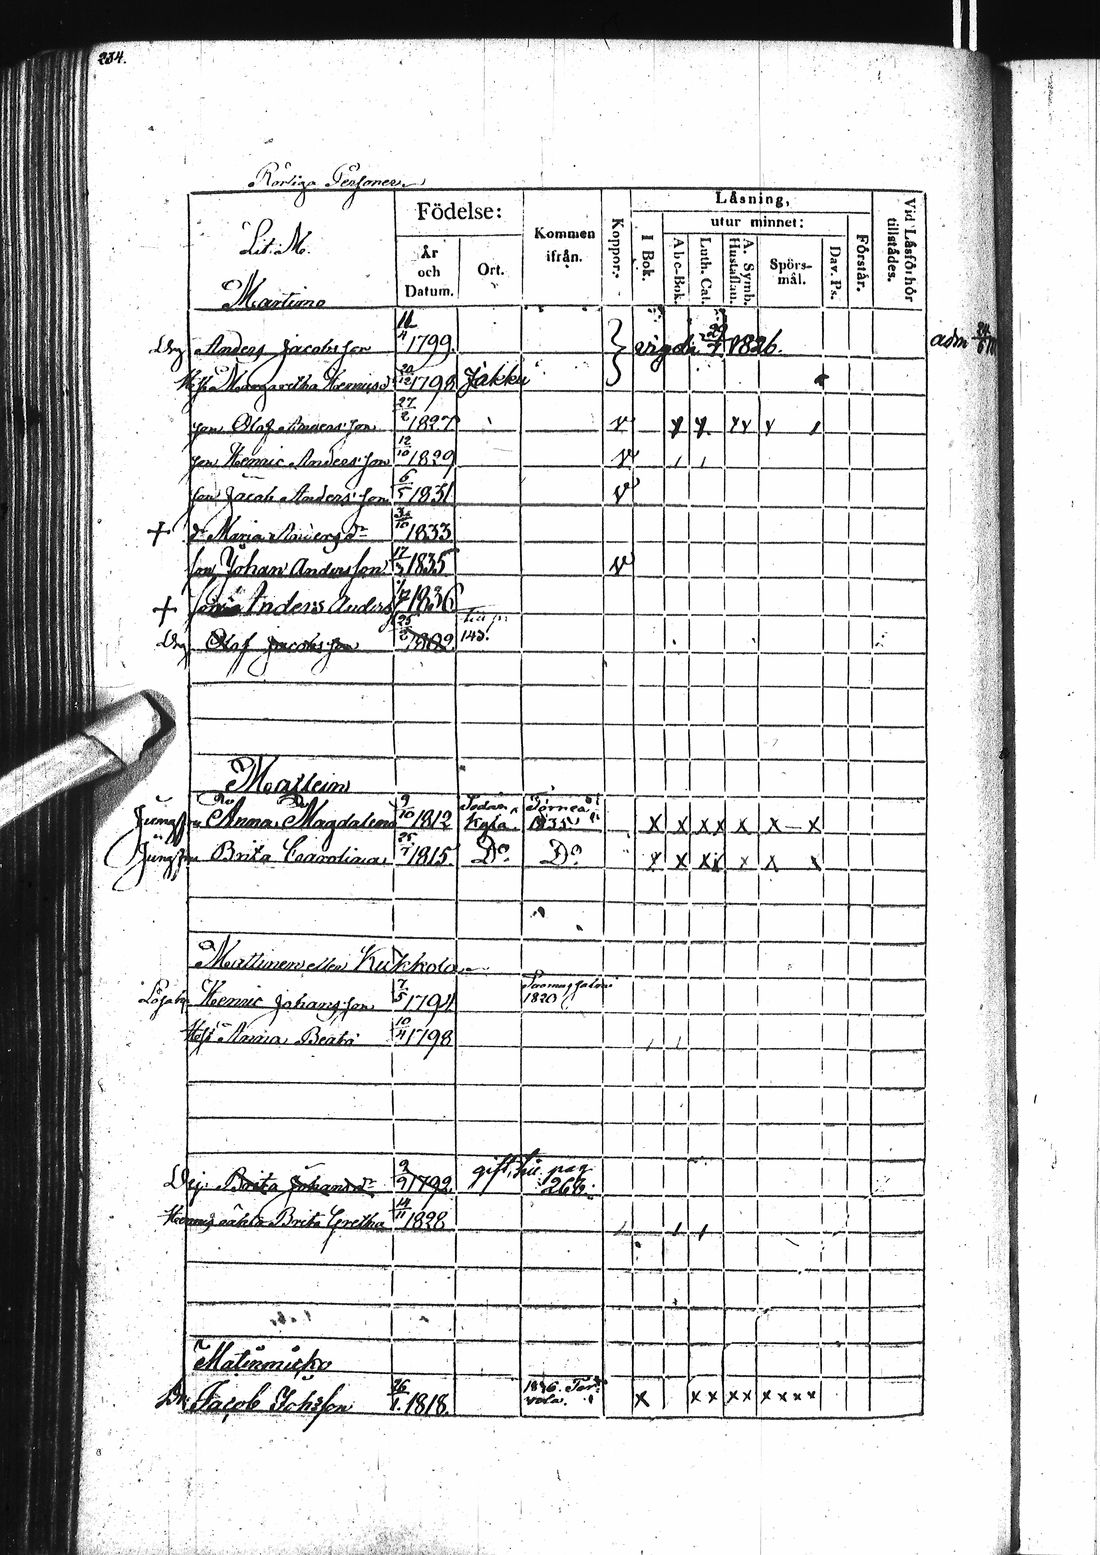 234.
Rörliga Personer
Lit. M.
Födelse:
År och Datum.
Ort.
Kommen ifrån.
Koppor.
Låsning,
I Bok.
utur minnet:
A b c-Bok.
Luth. Cat.
A. Symb. Hustaflan.
Spörs-mål.
Dav. Ps.
Förstår.
Vid Låsförhör tillstådes.
Martimo
Drg Anders Jacobsson 11/4 1799. vigde 1826. adm
Margaretha Henricsd 20/12 1798 Jakku
son Olof Andersson 27/2 1827 v x x x x x
son Henric Andersson 12/10 1829 v
son Jacob Andersson 6/5 1831 v
+ dr Maria Andersdr 1833
son Johan Andersson 17/3 1835 v
+ son Anders Anders 1836
Drg Olof Jacobsson 25/2 1802. 143.
Mattein
Jungfru Anna Magdalena 9/10 1812 Sodan kyla Torneå 1835 x x x x x x - x
Jungfru Brita Carolina 25/7 1815 Do Do x x x x x x x
Mattinen eller Kukkola
Henric Johansson 7/5 1794. 1820
Anna Beata 10/4 1798
Brita Johansdr 9/9 1792. gift, pag 268.
Brita Gretha 14/11 1828
Matinmicko
Dr. Jacob Johsson 26/1. 1818. 1836. Tervola. x x x x x x x x x